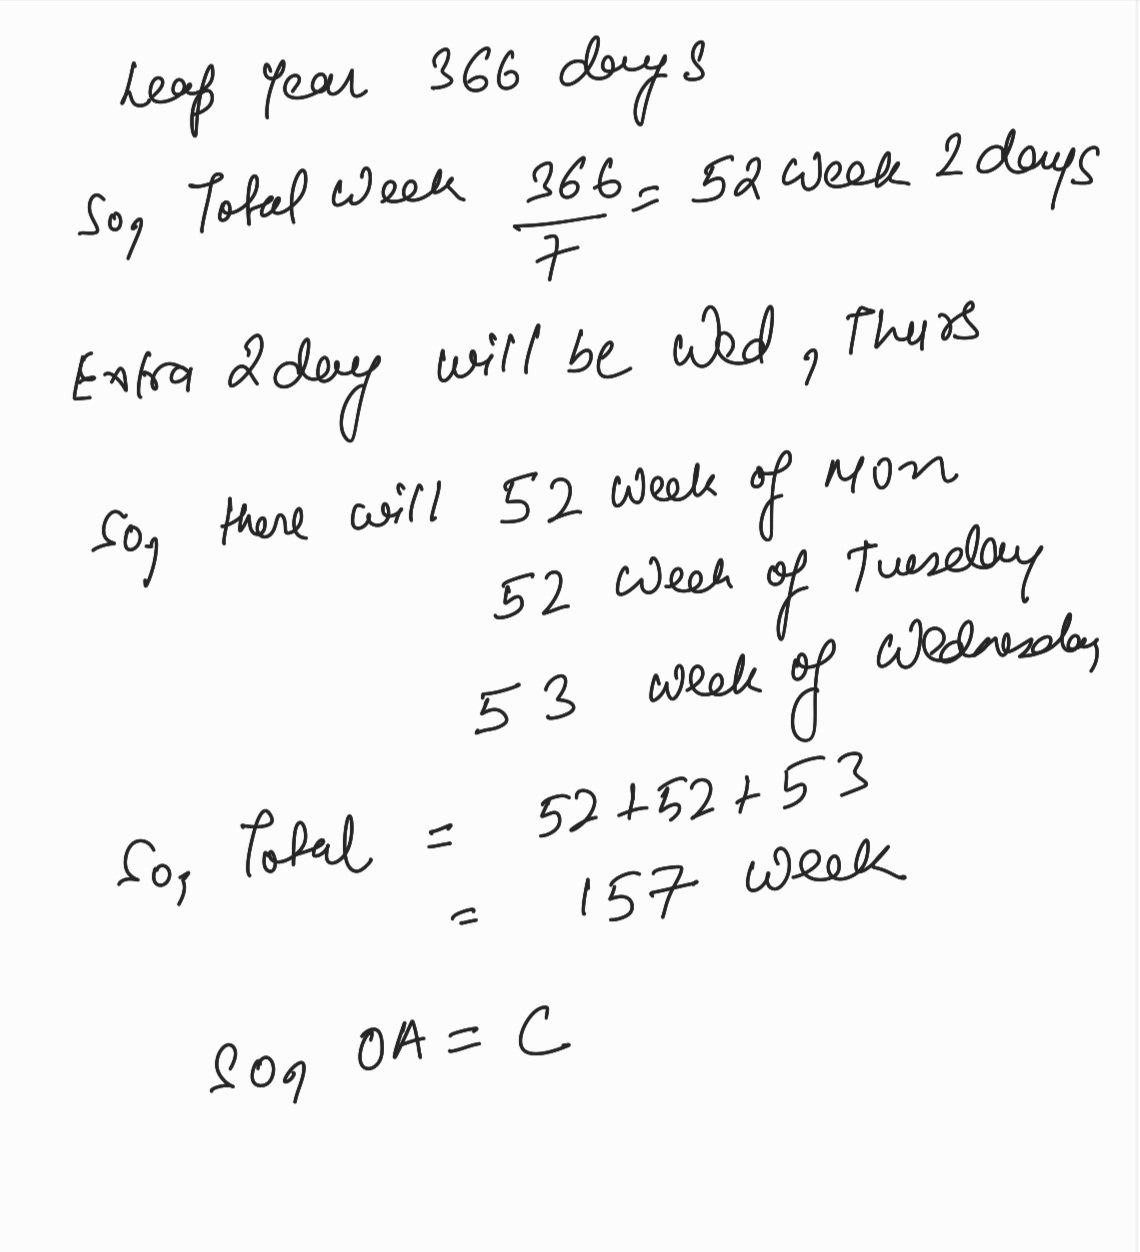 Leap Year 366 days
So, Total Week 366/7 = 52 Week 2 days
Extra 2 day will be Wed, Thurs
So, there will 52 Week of Mon
52 Week of Tuesday
53 Week of Wednesday
So, Total = 52+52+53
= 157 Week
So, OA = C